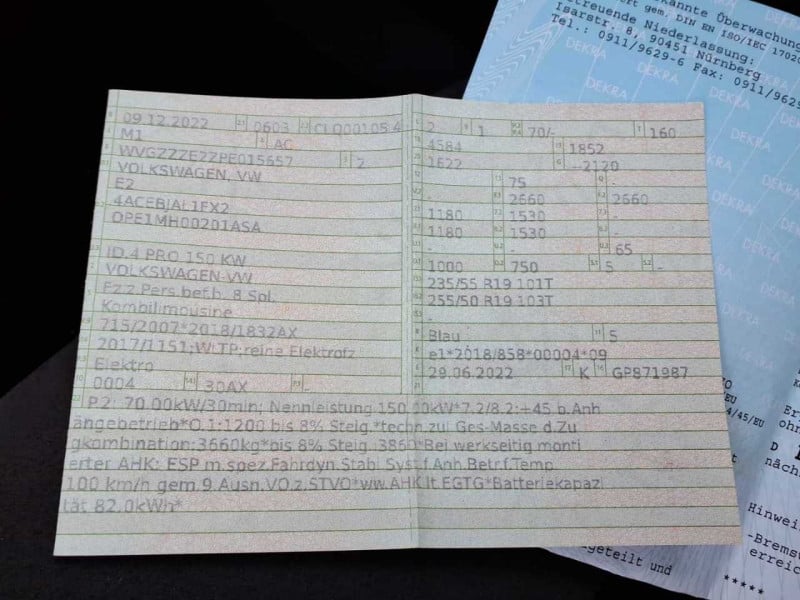 09.12.2022 0603 CLQ00105 4
M1 AC
WVGZZZE2ZPE015657 2
VOLKSWAGEN, VW
E2
4ACEBJAL1FX2
OPE1MH00201ASA
ID.4 PRO 150 KW
VOLKSWAGEN-VW
Fz.z.Pers.bef.b. 8 Spl.
Kombilimousine
715/2007*2018/1832AX
2017/1151;WLTP;reine Elektrofz
Elektro
0004 30AX -
2 1 70/- 160
4584 1852
1622 --2120
75 -
2660 2660
1180 1530 -
1180 1530 -
- - 65
1000 750 5 -
235/55 R19 101T
255/50 R19 103T
-
Blau 5
e1*2018/858*00004*09
29.06.2022 K GP871987
P2: 70.00kW/30min; Nennleistung 150.00kW*7.2/8.2:+45 b.Anh
ängebetrieb*O.1:1200 bis 8% Steig.*techn.zul Ges-Masse d.Zu
gkombination:3660kg*bis 8% Steig.:3860*Bei werkseitig monti
erter AHK: ESP m.spez.Fahrdyn.Stabi Syst.f.Anh.Betr.f.Temp.
100 km/h gem.9.Ausn.VO.z.STVO*ww.AHK lt.EGTG*Batteriekapazi
tät 82.0kWh*
kannte Überwachung
gem. DIN EN ISO/IEC 17020
etreuende Niederlassung:
Isarstr. 8, 90451 Nürnberg
Tel.: 0911/9629-6 Fax: 0911/9629
DEKRA
/EU
4/45/EU
ohn
D
näch
Hinwei
-Bremsw
erreic
geteilt und *****